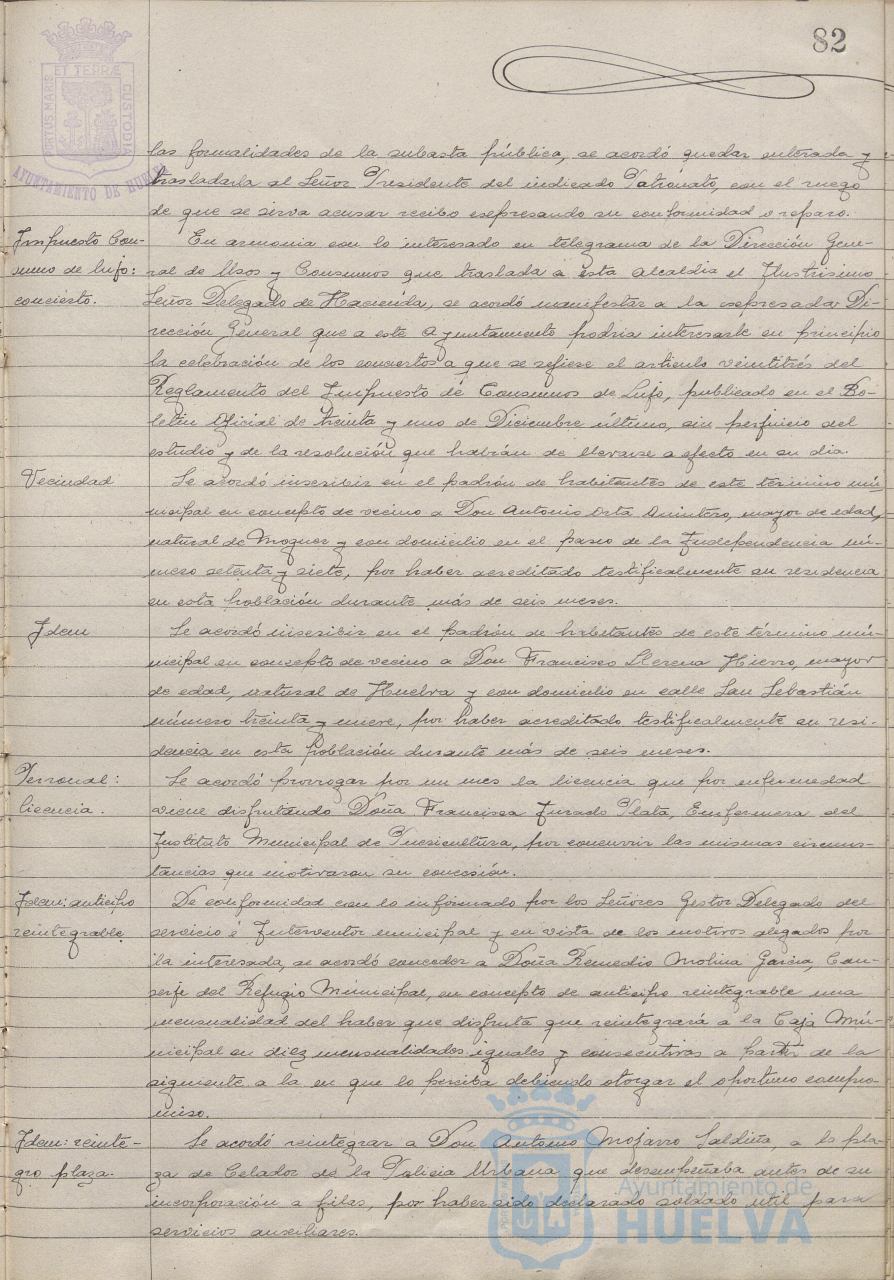 82
PORTUS MARIS ET TERRÆ CUSTODIA
AYUNTAMIENTO DE HUELVA
las formalidades de la subasta pública, se acordó quedar enterada y
trasladarla al Señor Presidente del indicado Patronato, con el ruego
de que se sirva acusar recibo expresando su conformidad o reparo.
Impuesto Con-
sumo de lujo:
concierto.
En armonia con lo interesado en telegrama de la Dirección Gene-
ral de Usos y Consumos que traslada a esta Alcaldia el Ilustrisimo
Señor Delegado de Hacienda, se acordó manifestar a la expresada Di-
rección General que a este Ayuntamiento podria interesarle en principio
la celebración de los conciertos a que se refiere el articulo veintitrés del
Reglamento del Impuesto de Consumos de Lujo, publicado en el Bo-
letin Oficial de treinta y uno de Diciembre último, sin perjuicio del
estudio y de la resolución que habrán de llevarse a efecto en su dia.
Vecindad
Se acordó inscribir en el padrón de habitantes de este término mu-
nicipal en concepto de vecino a Don Antonio Orta Quintero, mayor de edad,
natural de Moguer y con domicilio en el paseo de la Independencia nú-
mero setenta y siete, por haber acreditado testificalmente su residencia
en esta población durante más de seis meses.
Idem
Se acordó inscribir en el padrón de habitantes de este término mu-
nicipal en concepto de vecino a Don Francisco Llerena Hierro, mayor
de edad, natural de Huelva y con domicilio en calle San Sebastián
número treinta y nueve, por haber acreditado testificalmente su resi-
dencia en esta población durante más de seis meses.
Personal:
licencia.
Se acordó prorrogar por un mes la licencia que por enfermedad
viene disfrutando Doña Francisca Jurado Plata, Enfermera del
Instituto Municipal de Puericultura, por concurrir las mismas circuns-
tancias que motivaron su concesión.
Idem: anticipo
reintegrable.
De conformidad con lo informado por los Señores Gestor Delegado del
servicio é Interventor municipal y en vista de los motivos alegados por
la interesada, se acordó conceder a Doña Remedio Molina Garcia, Con-
serje del Refugio Municipal, en concepto de anticipo reintegrable una
mensualidad del haber que disfruta que reintegrará a la Caja Mu-
nicipal en diez mensualidades iguales y consecutivas a partir de la
siguiente a la en que lo perciba debiendo otorgar el oportuno compro-
miso.
Idem: reinte-
gro plaza.
Se acordó reintegrar a Don Antonio Mojarro Saldiña, a la pla-
za de Celador de la Policia Urbana que desempeñaba antes de su
incorporación a filas, por haber sido declarado soldado util para
servicios auxiliares.
Ayuntamiento de
HUELVA